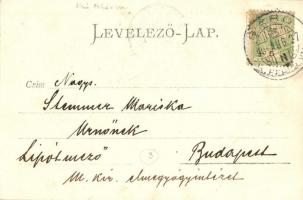 LEVELEZŐ-LAP.
Czim Nagys.
Stemmer Mariska
Urnőnek
Lipótmező Budapest
M. kir. elmegyógyintézet